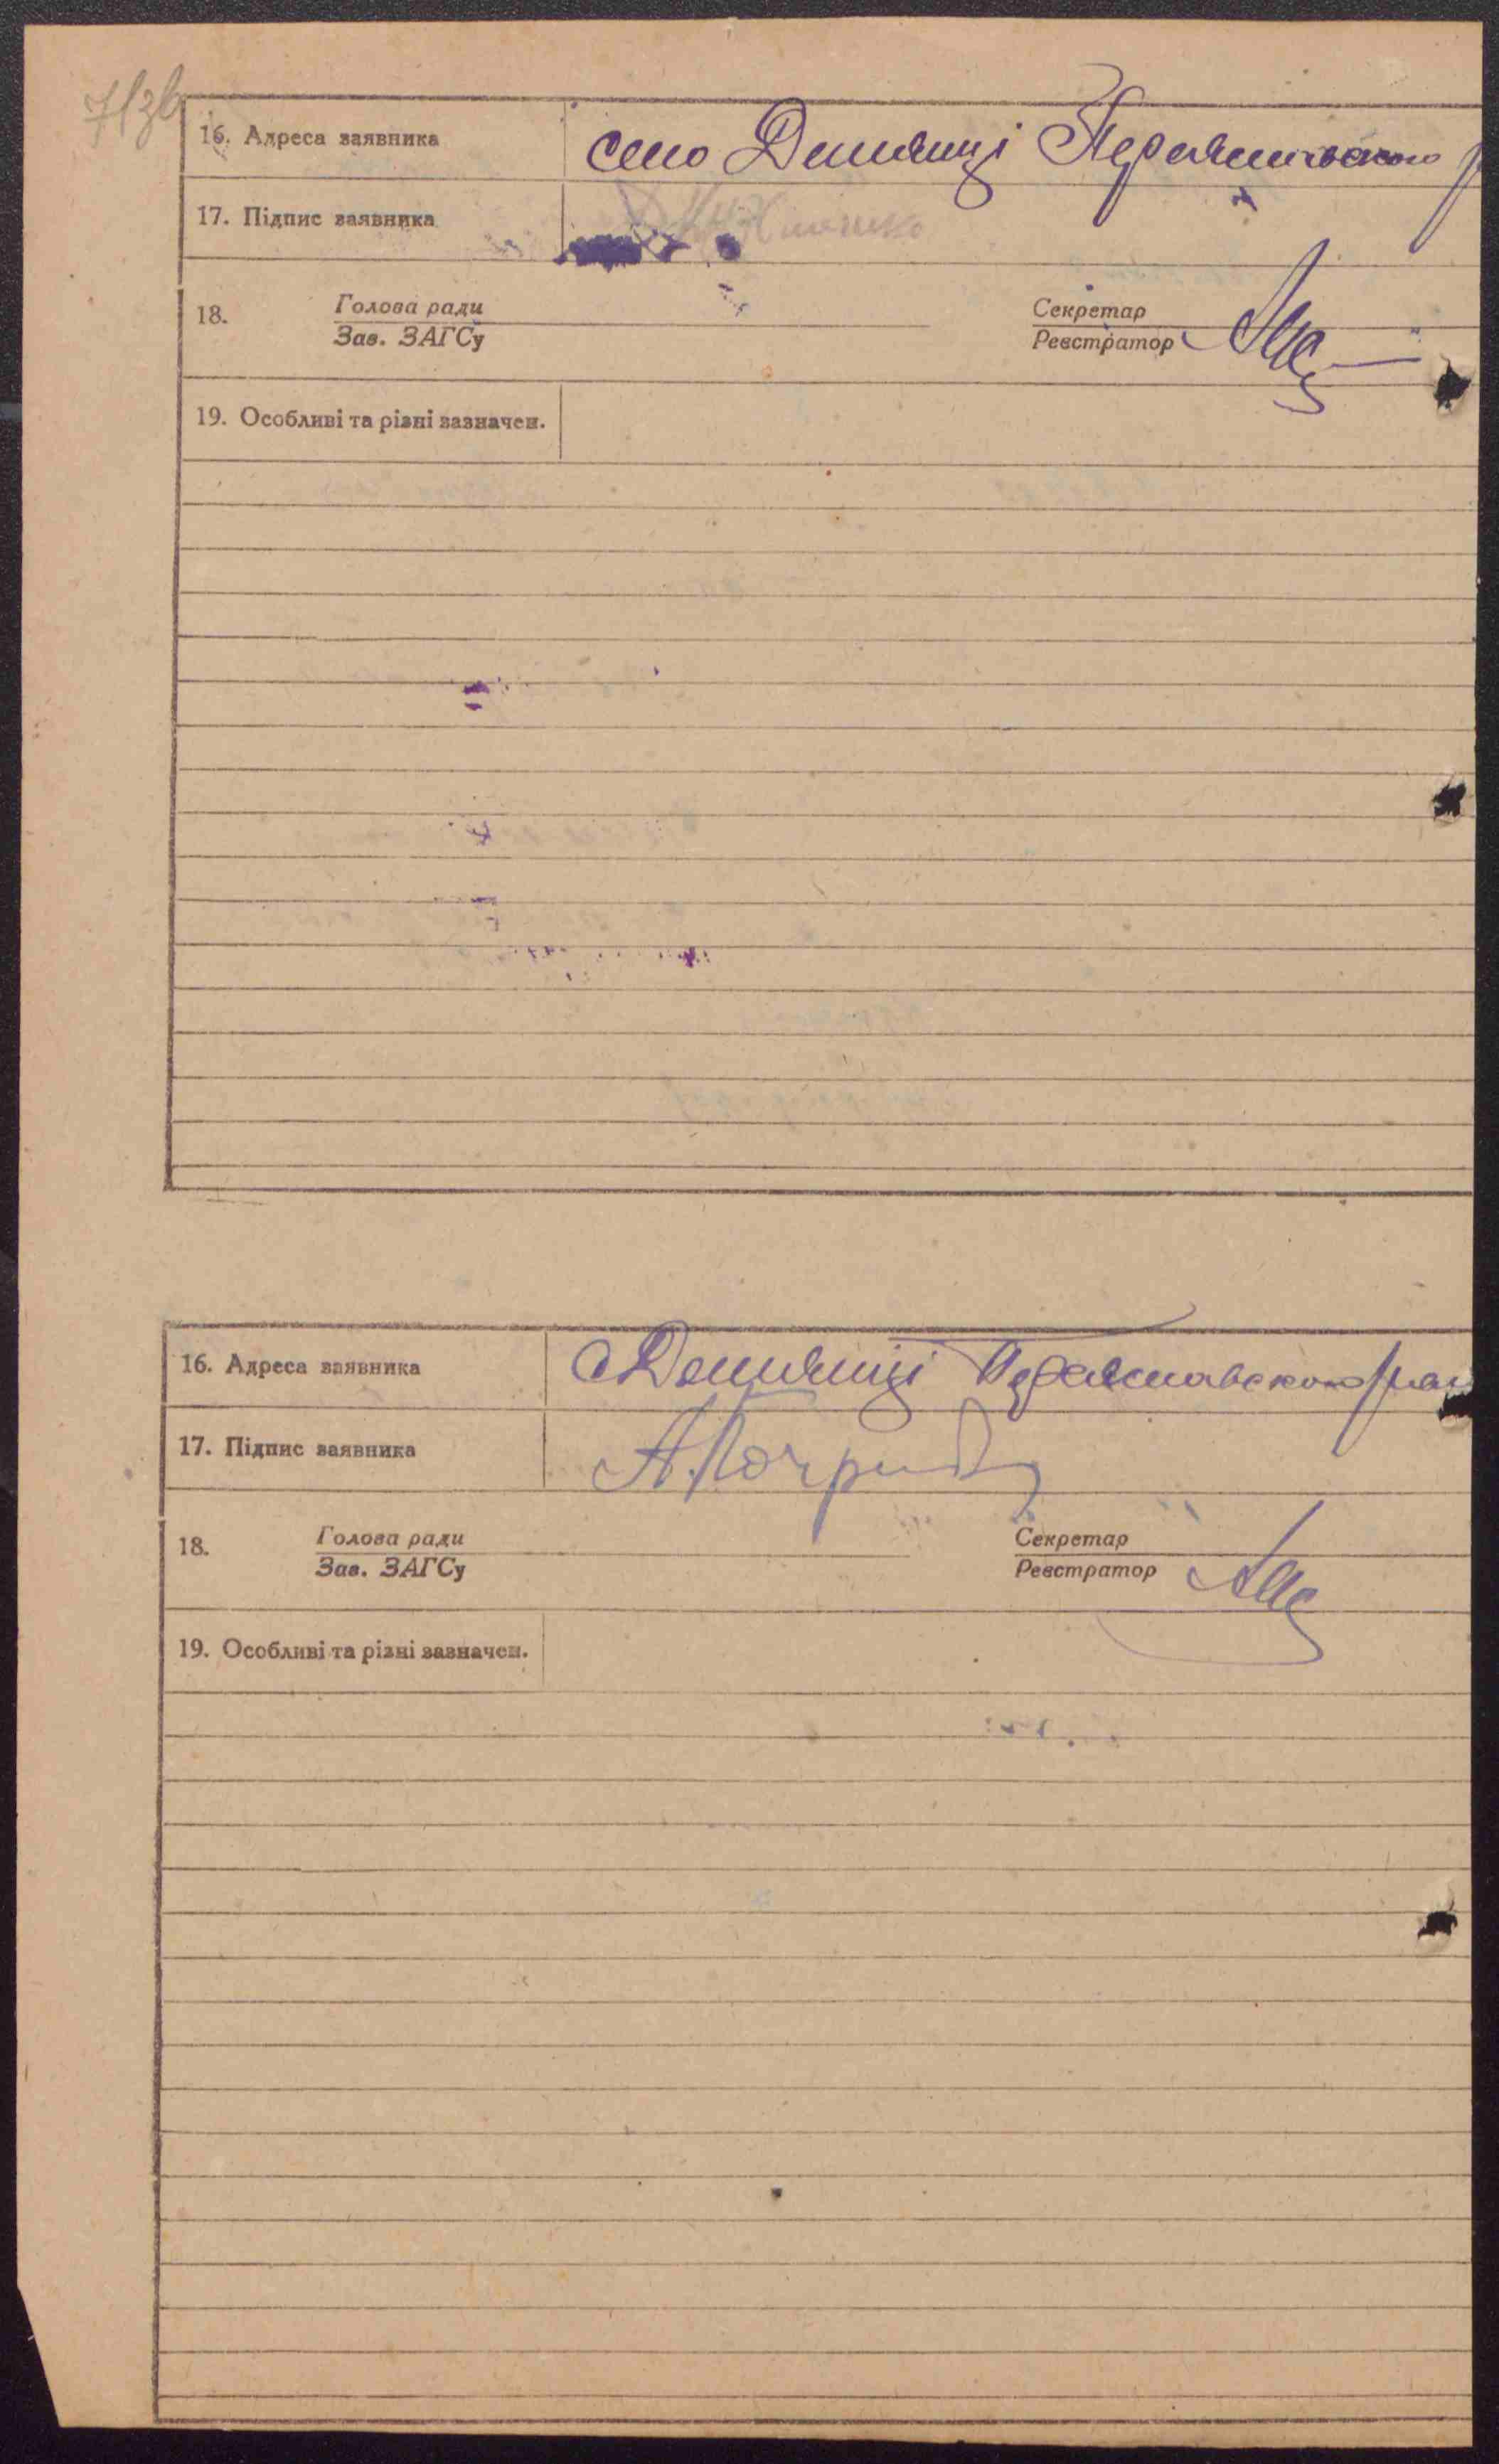 71зв
16. Адреса заявника село Демянці Переяславського р
17. Підпис заявника
18. Голова ради Секретар
Зав. ЗАГСу Реєстратор
19. Особливі та різні зазначен.
16. Адреса заявника с Демянці Переяславського рай
17. Підпис заявника
18. Голова ради Секретар
Зав. ЗАГСу Реєстратор
19. Особливі та різні зазначен.